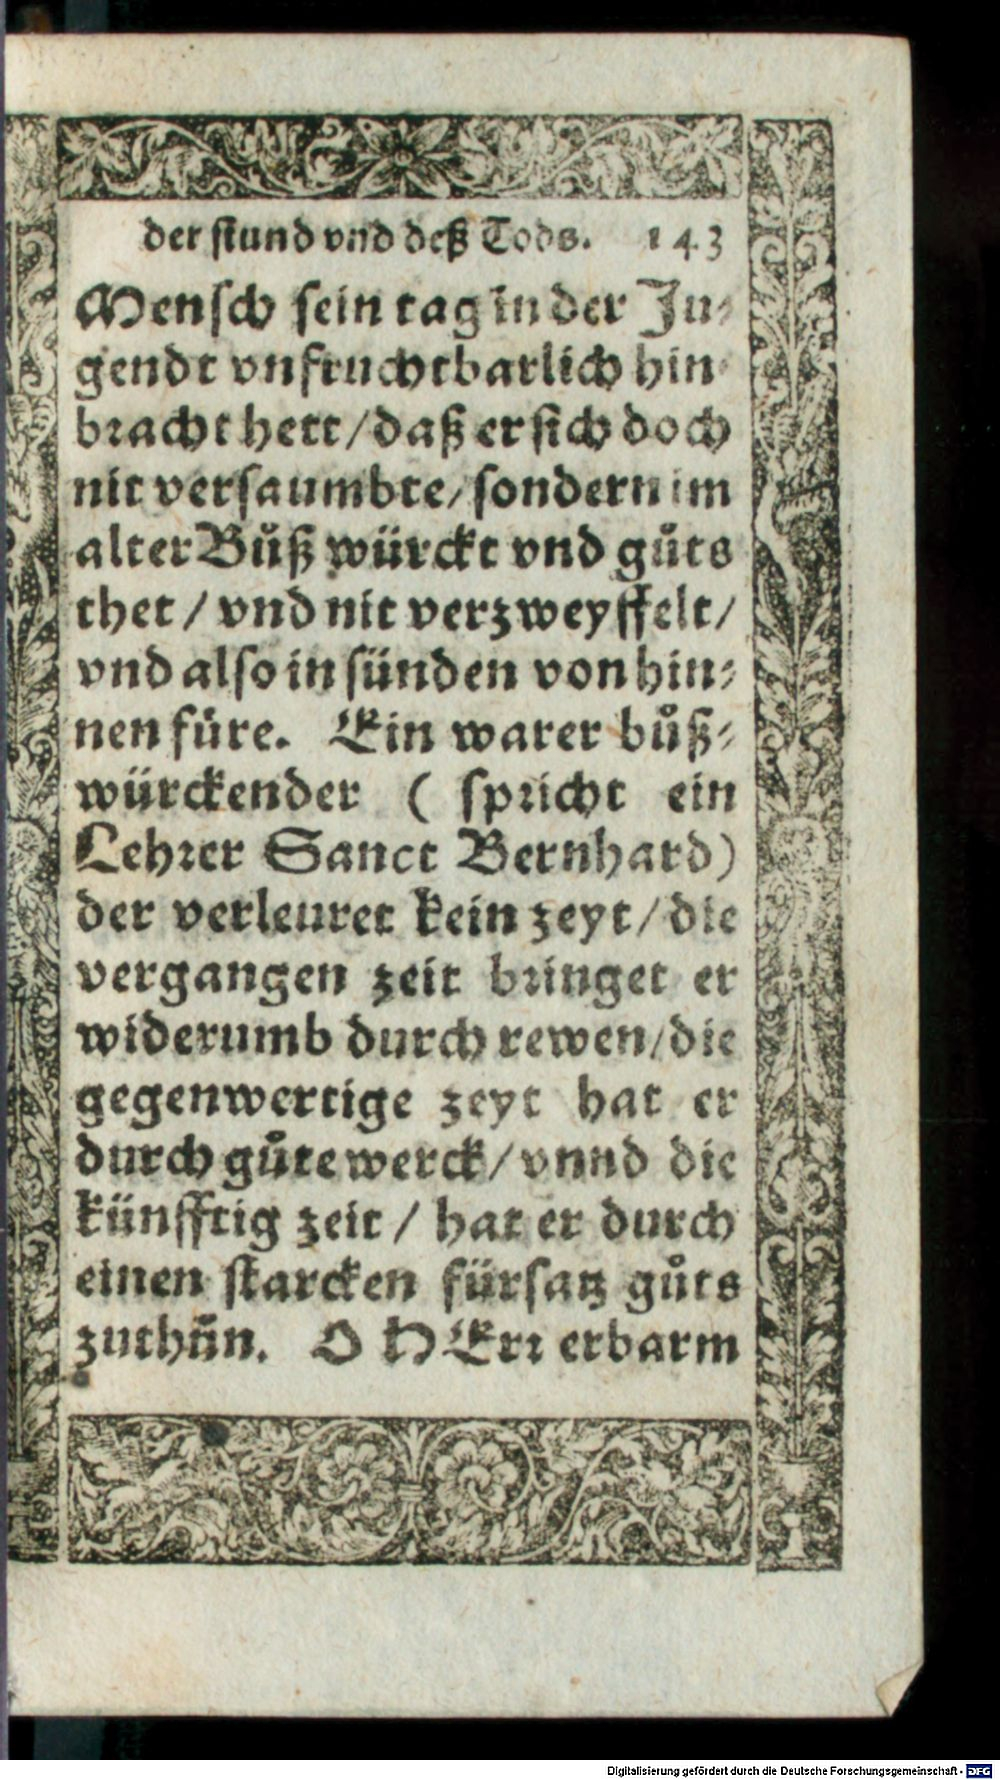 der stund vnd deß Tods. 143
Mensch sein tag in der Ju-
gendt vnfruchtbarlich hin-
bracht hett/daß er sich doch
nit versaumbte/sondern im
alter Bůß würckt vnd gůts
thet/vnd nit verzweyffelt/
vnd also in sünden von hin-
nen füre. Ein warer bůß-
würckender (spricht ein
Lehrer Sanct Bernhard)
der verleuret kein zeyt/die
vergangen zeit bringet er
widerumb durch rewen/die
gegenwertige zeyt hat er
durch gůte werck/vnnd die
künfftig zeit/hat er durch
einen starcken fürsatz gůts
zuthůn. O HErr erbarm
Digitalisierung gefördert durch die Deutsche Forschungsgemeinschaft - DFG